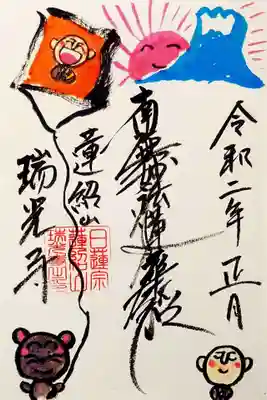 令和二年正月
南無妙法蓮華経
蓮紹山
瑞光寺
日蓮宗
蓮紹山
瑞光寺